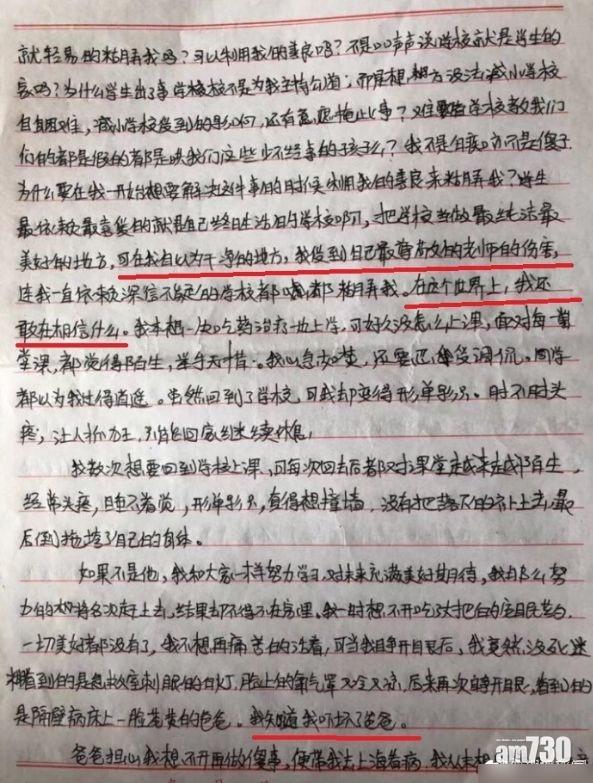 就轻易的糊弄我吗？可以利用我的善良吗？不是口口声声说学校就是学生的
家吗？为什么学生出了事学校不是为我主持公道；而是想方设法减小学校
自己困难，减小学校受到的影响，还有意想掩此事？难道学校教我们
们的都是假的都是哄我们这些少不经事的孩子么？我不是白痴亦不是傻子
为什么要在我一开始想要解决这件事的时候利用我的善良来糊弄我？学生
最依赖最喜爱的就是自己终日生活的学校啊，把学校当做最纯洁最
美好的地方，可在我自以为干净的地方，我受到自己最尊敬的老师的伤害，
连我一直依赖深信不疑的学校都糊弄我。在这个世界上，我还
敢在相信什么。我本想一边吃药治疗一边上学，可好久没怎么上课，面对每一
堂课，都觉得陌生，举步无措。我心急如焚，还要忍受调侃。同学
都以为我过得逍遥。虽然回到了学校，可我却变得形单影只。时不时头
疼，让人抓狂，只能回家继续休息，
我数次想要回到学校上课，可每次回去后都对课堂越来越陌生，
经常头疼，睡不着觉，形单影只，真得想撞墙，没有把落下的补上去，最
后倒拖垮了自己的身体。
如果不是他，我和大家一样努力学习，对未来充满美好期待，我那么努
力的想将名次赶上去，结果却不得不在家里。我一时想不开吃了大把的安眠药，
一切美好都没有了，我不想再痛苦的活着，可当我睁开目艮后，我竟然没死，迷
糊看到的是急救室刺眼的白灯，脸上的氧气罩又冷又凉，后来再次睁开眼，看到的
是隔壁病床上一脸苍黄的爸爸。我知道我吓坏了爸爸。
爸爸担心我想不开再做傻事，便带我去上海看病，我从未想
am730